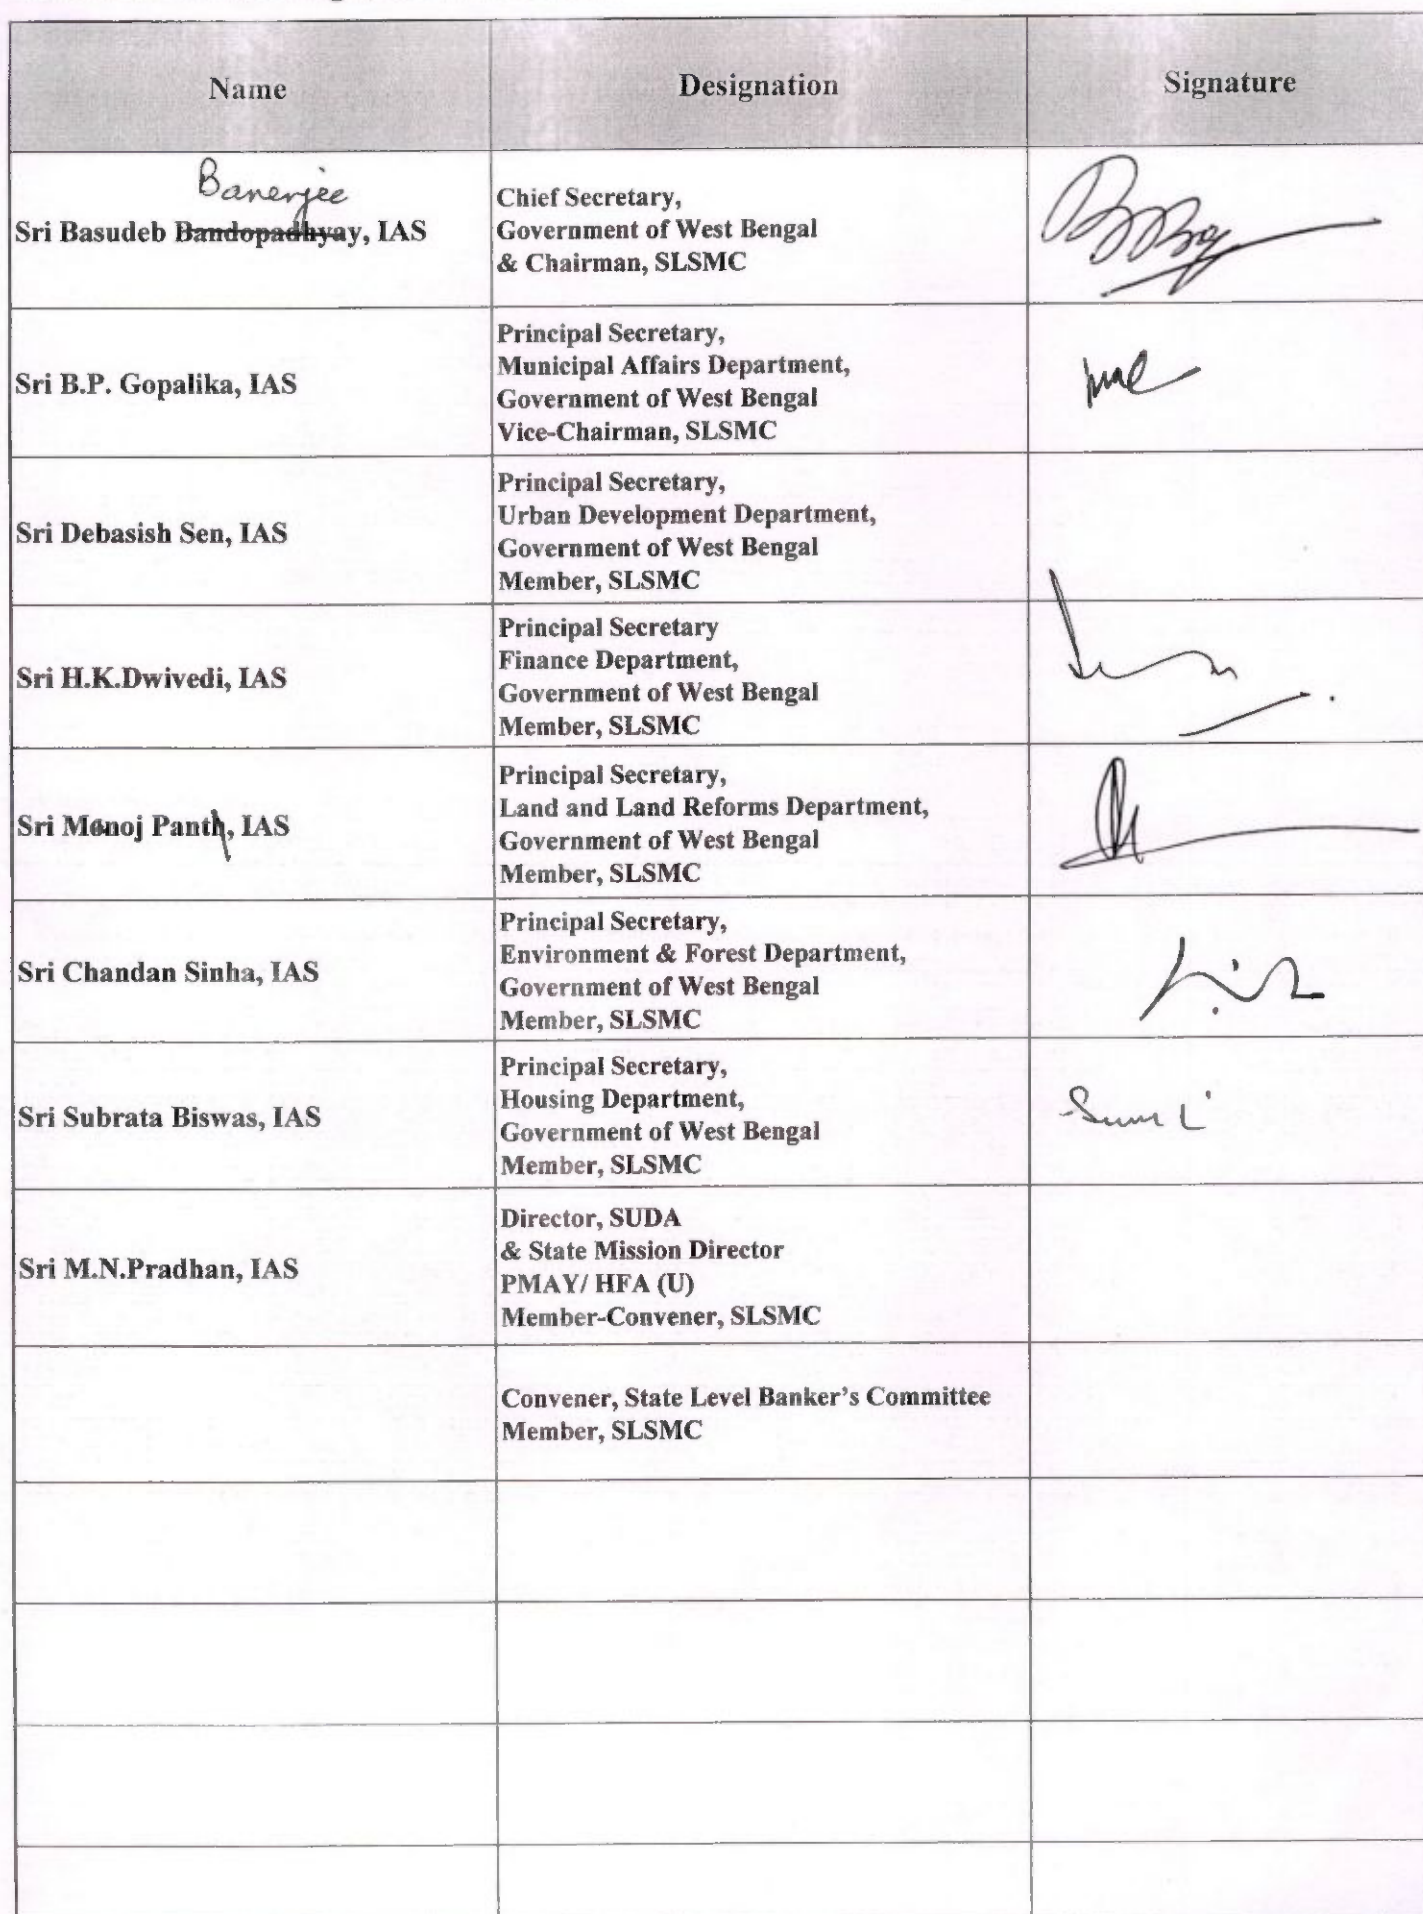 Name Designation Signature
Banerjee
Sri Basudeb Bandopadhyay, IAS
Chief Secretary,
Government of West Bengal
& Chairman, SLSMC
Sri B.P. Gopalika, IAS
Principal Secretary,
Municipal Affairs Department,
Government of West Bengal
Vice-Chairman, SLSMC
Sri Debasish Sen, IAS
Principal Secretary,
Urban Development Department,
Government of West Bengal
Member, SLSMC
Sri H.K.Dwivedi, IAS
Principal Secretary
Finance Department,
Government of West Bengal
Member, SLSMC
Sri Manoj Panth, IAS
Principal Secretary,
Land and Land Reforms Department,
Government of West Bengal
Member, SLSMC
Sri Chandan Sinha, IAS
Principal Secretary,
Environment & Forest Department,
Government of West Bengal
Member, SLSMC
Sri Subrata Biswas, IAS
Principal Secretary,
Housing Department,
Government of West Bengal
Member, SLSMC
Sri M.N.Pradhan, IAS
Director, SUDA
& State Mission Director
PMAY/ HFA (U)
Member-Convener, SLSMC
Convener, State Level Banker's Committee
Member, SLSMC